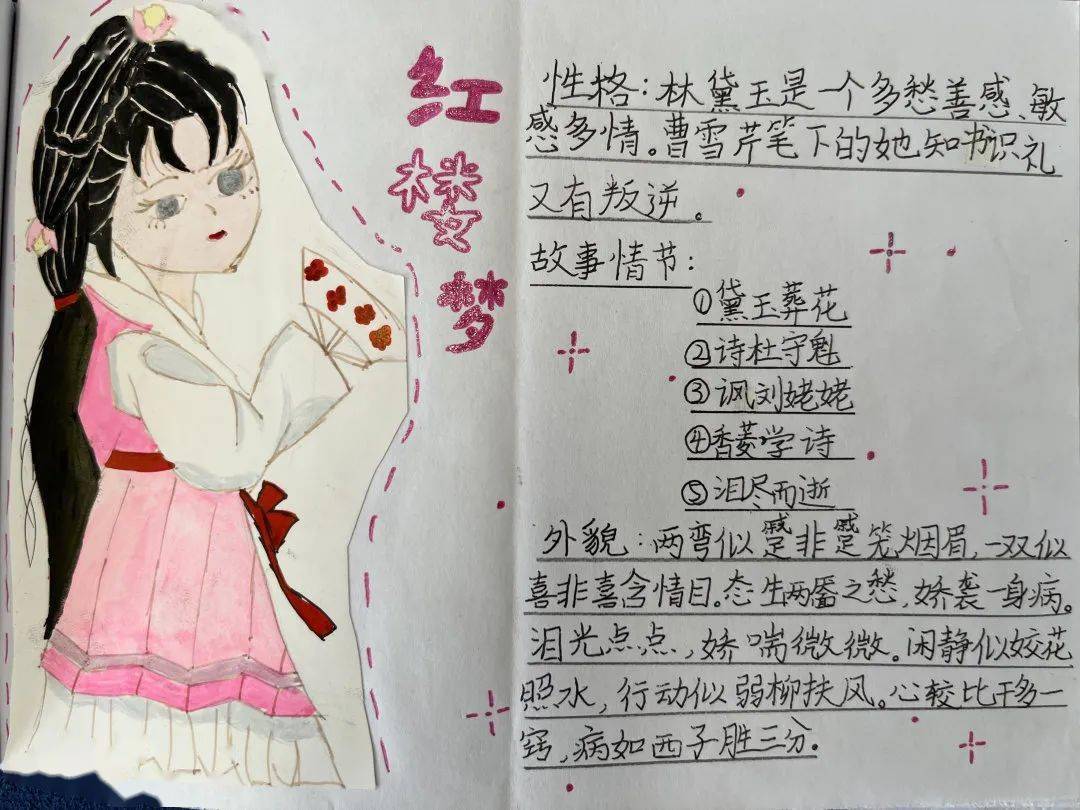 红楼梦
性格:林黛玉是一个多愁善感、敏
感多情。曹雪芹笔下的她知书识礼
又有叛逆。
故事情节:
①黛玉葬花
②诗杜守魁
③讽刘姥姥
④香菱学诗
⑤泪尽而逝
外貌:两弯似蹙非蹙笼烟眉,一双似
喜非喜含情目。态生两靥之愁,娇袭一身病。
泪光点点,娇喘微微。闲静似姣花
照水,行动似弱柳扶风。心较比干多一
窍,病如西子胜三分。